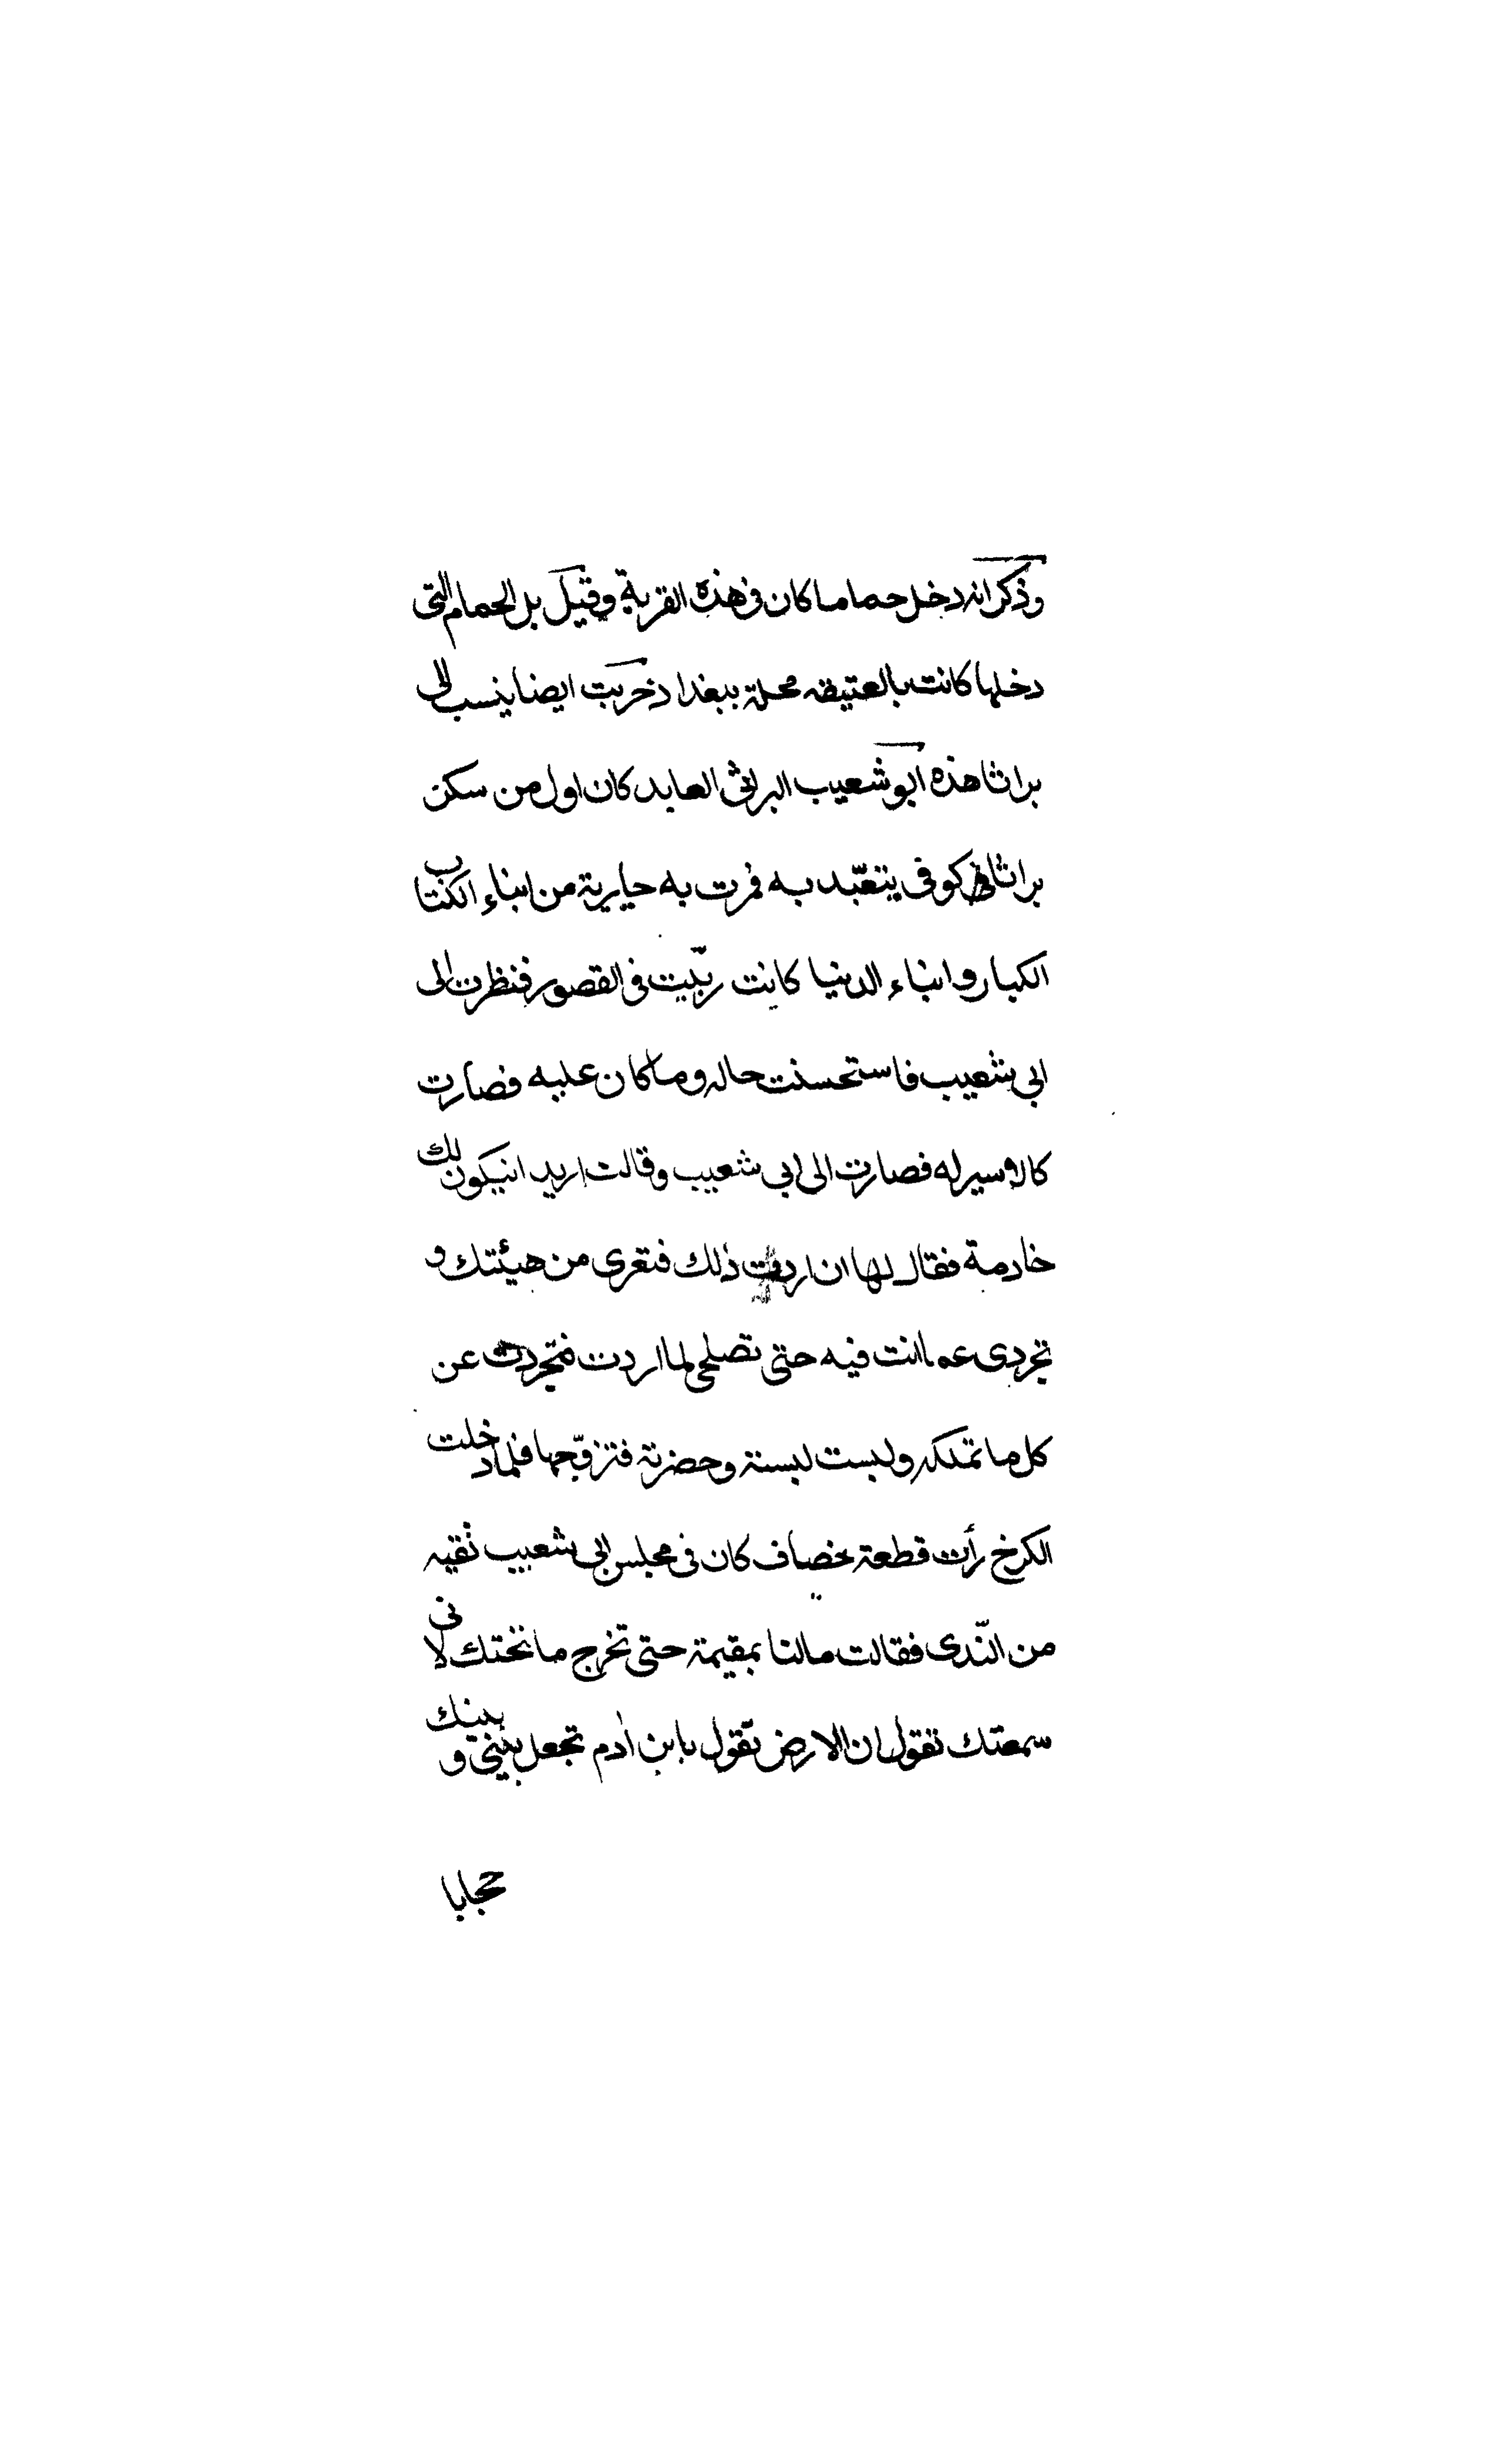 وذكر انه دخل حماما كان فى هذه القرية وقيل بل الحمام التى
دخلها كانت بالعتيقه محلة ببغداد خربت ايضا ينسب الى
براثا هذه ابو شعيب البراثى العابد كان اول من سكن
براثا فى كوفى يتعبّد به فمرت به جارية من ابناء الكتاب
الكبار وابناء الدنيا كانت ربّيت فى القصور فنظرت الى
ابى شعيب فاستحسنت حاله وما كان عليه فصارت
كالاسير له فصارت الى ابى شعيب وقالت اريد انيكون لك
خادمة فقال لها ان اردت ذلك فتعرى من هيئتك و
تجردى عما انت فيه حتى تصلحى لما اردت فتجردت عن
كل ما تملكه ولبست لبسته وحضرته فتزوّجها فلما دخلت
الكرخ رأت قطعة خصاف كان فى مجلس ابى شعيب تقيه
من النّدى فقالت مالنا بمقيمة حتى تخرج ما تحتك لانى
سمعتك تقول ان الارض تقول يابن ادم تجعل بينى و بينك
حجابا